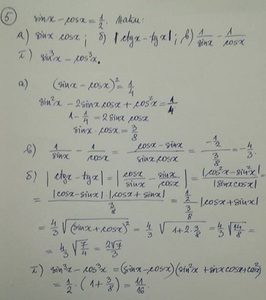 ⑤ sinx - cosx = 1/2. Найти:
а) sinx cosx; б) |ctgx - tgx|; в) 1/sinx - 1/cosx
г) sin³x - cos³x.
а) (sinx - cosx)² = 1/4
sin²x - 2sinx cosx + cos²x = 1/4
1 - 1/4 = 2sinx cosx
sinx · cosx = 3/8
в) 1/sinx - 1/cosx = (cosx - sinx)/(sinx cosx) = (-1/2)/(3/8) = -4/3.
б) |ctgx - tgx| = |cosx/sinx - sinx/cosx| = |cos²x - sin²x|/|sinx cosx| =
= |cosx - sinx| · |cosx + sinx|/(3/8) = (1/2)/(3/8) |cosx + sinx| =
= 4/3 √(sinx + cosx)² = 4/3 √(1 + 2·3/8) = 4/3 √(14/8) =
= 4/3 √(7/4) = 2√7/3
г) sin³x - cos³x = (sinx - cosx)(sin²x + sinxcosx + cos²x)
= 1/2 · (1 + 3/8) = 11/16